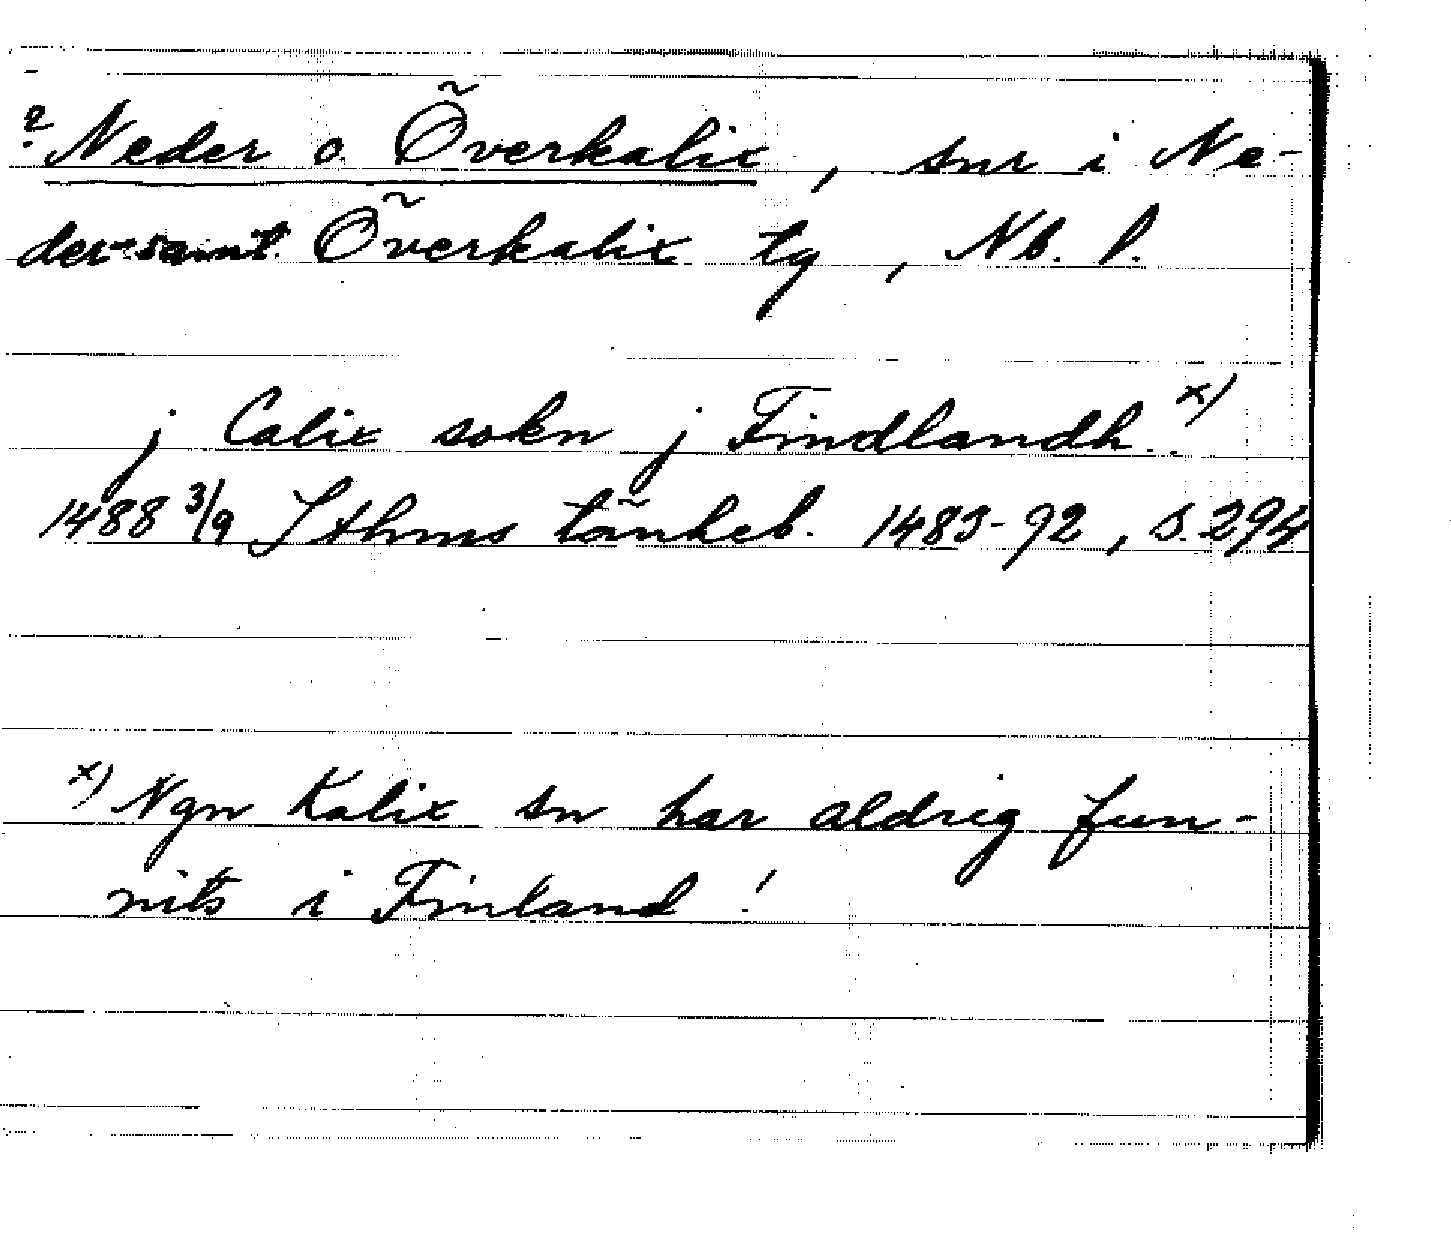 ? Neder o. Överkalix, snr i Ne-
der- samt Överkalix tg, Nb. l.
j Calix sokn j Findlandh. x)
1488 3/9 Sthms tänkeb. 1483-92, s. 294
x) Ngn Kalix sn har aldrig fun-
nits i Finland!